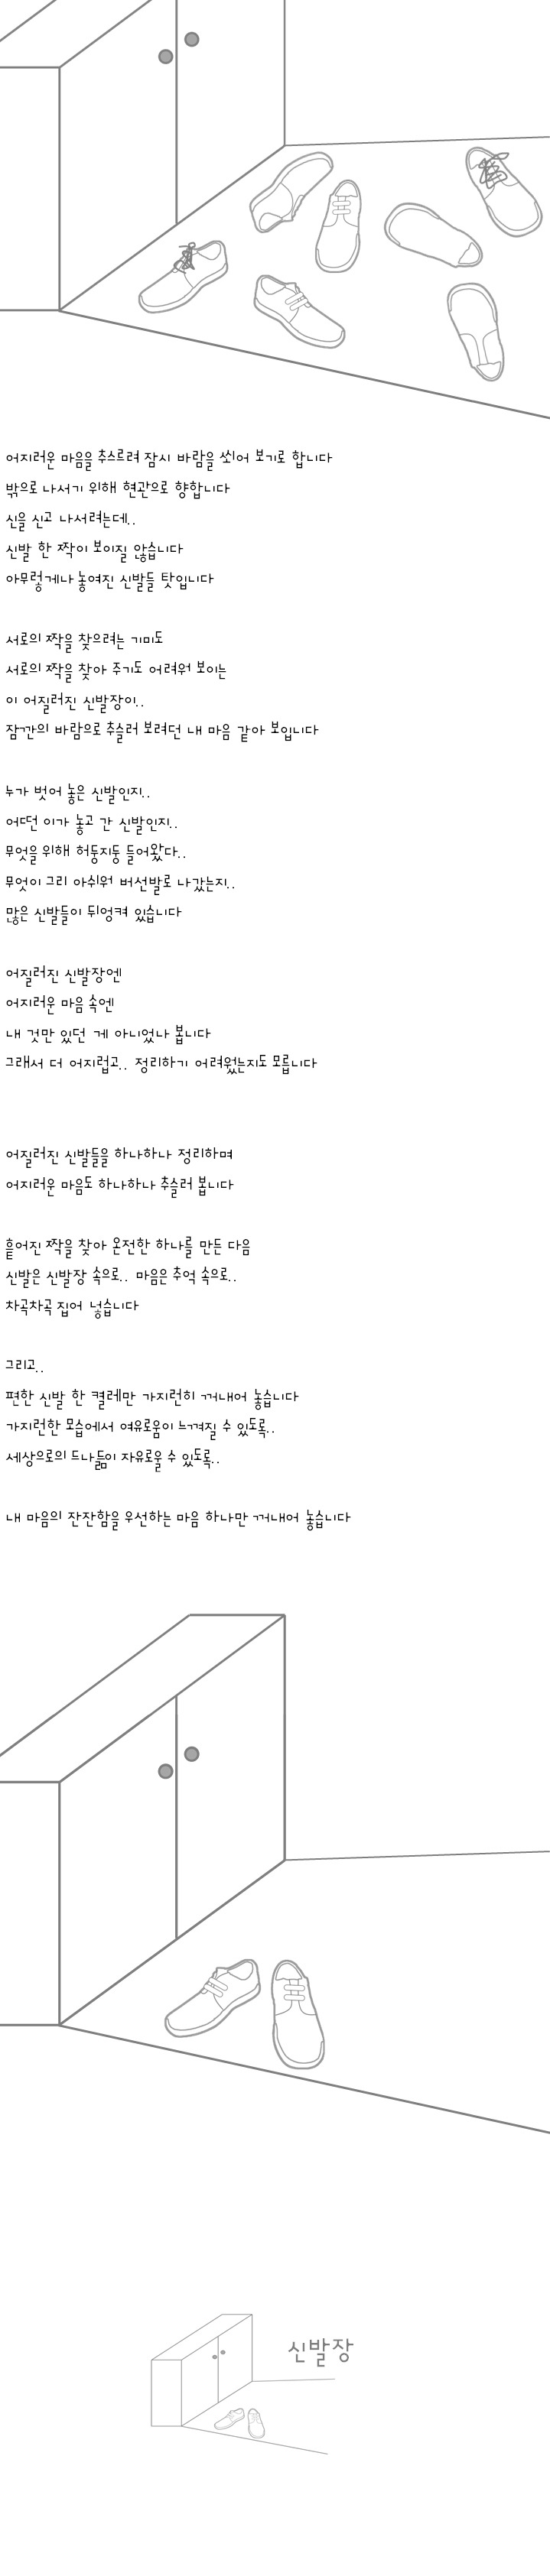 어지러운 마음을 추스르려 잠시 바람을 쐬어 보기로 합니다
밖으로 나서기 위해 현관으로 향합니다
신을 신고 나서려는데..
신발 한 짝이 보이질 않습니다
아무렇게나 놓여진 신발들 탓입니다
서로의 짝을 찾으려는 기미도
서로의 짝을 찾아 주기도 어려워 보이는
이 어질러진 신발장이..
잠깐의 바람으로 추슬러 보려던 내 마음 같아 보입니다
누가 벗어 놓은 신발인지..
어떤 이가 놓고 간 신발인지..
무엇을 위해 허둥지둥 들어왔다..
무엇이 그리 아쉬워 버선발로 나갔는지..
많은 신발들이 뒤엉켜 있습니다
어질러진 신발장엔
어지러운 마음 속엔
내 것만 있던 게 아니었나 봅니다
그래서 더 어지럽고.. 정리하기 어려웠는지도 모릅니다
어질러진 신발들을 하나하나 정리하며
어지러운 마음도 하나하나 추슬러 봅니다
흩어진 짝을 찾아 온전한 하나를 만든 다음
신발은 신발장 속으로.. 마음은 추억 속으로..
차곡차곡 집어 넣습니다
그리고..
편한 신발 한 켤레만 가지런히 꺼내어 놓습니다
가지런한 모습에서 여유로움이 느껴질 수 있도록..
세상으로의 드나듦이 자유로울 수 있도록..
내 마음의 잔잔함을 우선하는 마음 하나만 꺼내어 놓습니다
신발장